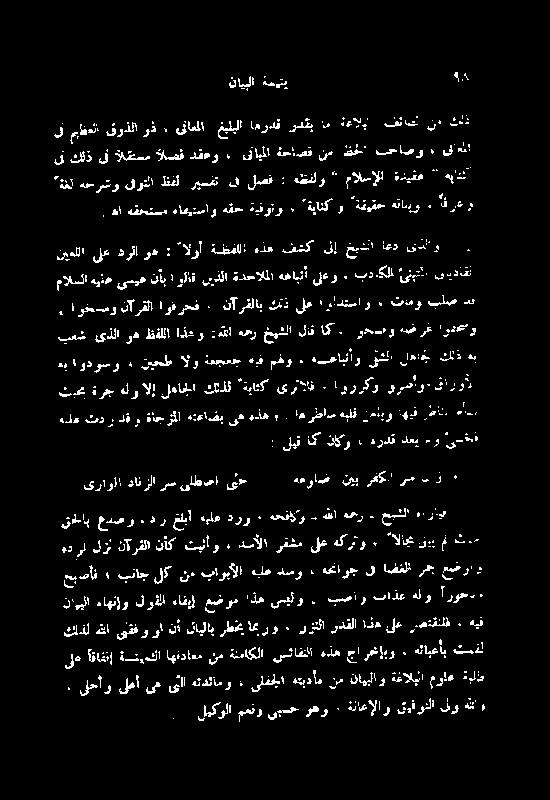 ٩٨
يتيمة البيان
ذلك من لطائف البلاغة ما يقدر قدرها البليغ المعانى ، ذو الذوق العظيم فى
المعانى ، وصاحب الحظ من فصاحة المبانى ، وعقد فصلا مستقلا فى ذلك فى
كتابه " عقيدة الإسلام " ولفظه : فصل فى تفسير لفظ التوفى وشرحه لغة
وعرفاً ، وبيانه حقيقة وكناية ، وتوفية حقه واستيفاء مستحقه اه .
والذى دعا الشيخ إلى كشف هذه اللفظة أولا : هو الرد على اللعين
القاديانى المتنبئ الكاذب ، وعلى أتباعه الملاحدة الذين قالوا بأن عيسى عليه السلام
قد صلب ومات ، واستدلوا على ذلك بالقرآن ، فحرفوا القرآن ومسخوا ،
غرضه ومسخوا ، كما قال الشيخ رحمه الله : وهذا اللفظ هو الذى شغب
به ذلك الجاهل الشقى وأتباعه ، ولهم فيه جعجعة ولا طحين ، وسودوا به
الأوراق وأصروا وكرروا ، فلا ترى كتابة لذلك الجاهل إلا وله جرة بحيث
فيها ويلعن قلبه ، هذه هى بضاعته المزجاة وقد ردت عليه
يعد قدره ، وكان كما قيل :
بين ضلوعه حتى اصطلى سر الزناد الوارى
الشيخ ـ رحمه الله ـ وكافحه ، ورد عليه أبلغ رد ، وصدع بالحق
لم يبق مجالا ، وتركه على مشفر الأسد ، وأثبت كأن القرآن نزل لرده
وأوضع جمر الغضا فى جوانحه ، وسد عليه الأبواب من كل جانب ؛ فأصبح
مدحوراً وله عذاب واصب ، وليس هذا موضع إيفاء القول وإنهاء البيان
فيه ، فلنقتصر على هذا القدر النزر ، وربما يخطر بالبال أن لو وفقنى الله لذلك
لقمت بأعبائه ، وبإخراج هذه النفائس الكامنة من معادنها الثمينة إنفاقاً على
طلبة علوم البلاغة والبيان من مأدبته الجفلى ، ومائدته التى هى أعلى وأحلى ،
والله ولى التوفيق والإعانة ، وهو حسبى ونعم الوكيل .